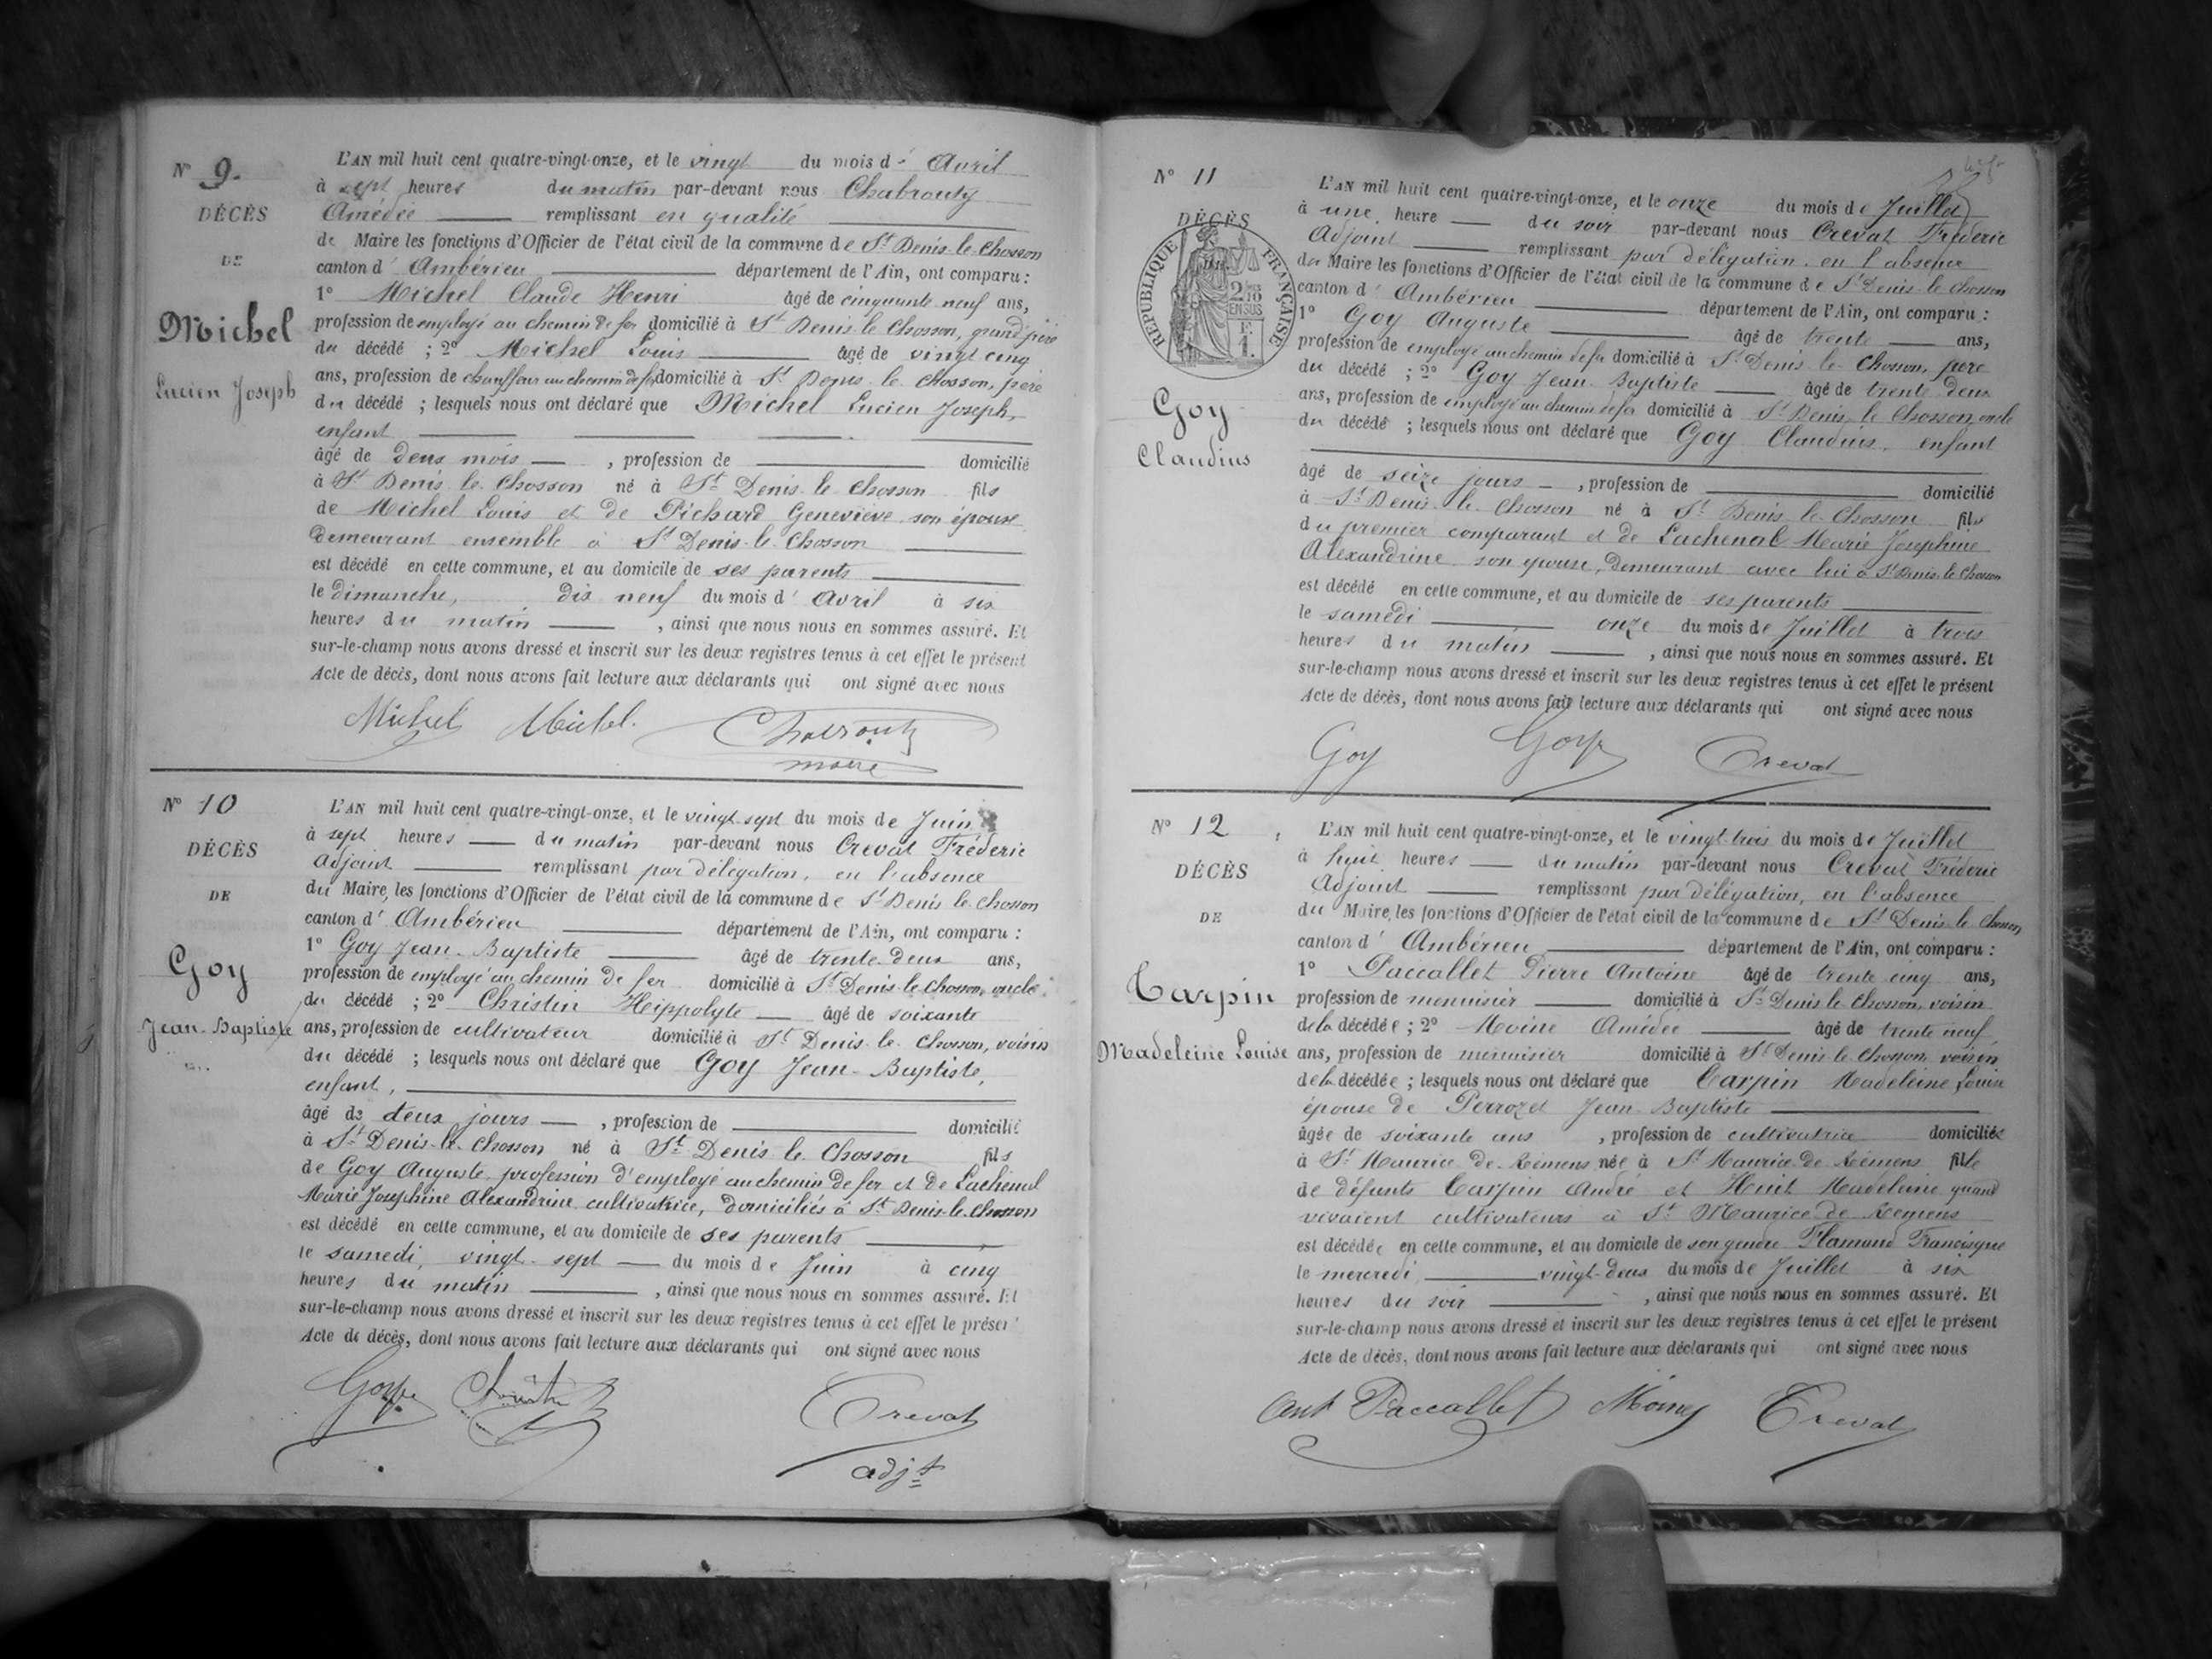 N° 9.
DÉCÈS
DE
Michel
Lucien Joseph
L'AN mil huit cent quatre-vingt-onze, et le vingt du mois d' Avril
à sept heures du matin par-devant nous Chabrouty
Amédée remplissant en qualité
de Maire les fonctions d'Officier de l'état civil de la commune de St Denis-le-Chosson
canton d' Ambérieu département de l'Ain, ont comparu :
1° Michel Claude Henri âgé de cinquante neuf ans,
profession de employé au chemin de fer domicilié à St Denis-le-Chosson, grand'père
du décédé ; 2° Michel Louis âgé de vingt cinq
ans, profession de chauffeur au chemin de fer domicilié à St Denis-le-Chosson, père
du décédé ; lesquels nous ont déclaré que Michel Lucien Joseph,
enfant
âgé de deux mois , profession de domicilié
à St Denis-le-Chosson né à St Denis-le-Chosson fils
de Michel Louis et de Pichard Geneviève son épouse
demeurant ensemble à St Denis-le-Chosson
est décédé en cette commune, et au domicile de ses parents
le dimanche, dix neuf du mois d' Avril à six
heures du matin , ainsi que nous nous en sommes assuré. Et
sur-le-champ nous avons dressé et inscrit sur les deux registres tenus à cet effet le présent
Acte de décès, dont nous avons fait lecture aux déclarants qui ont signé avec nous
Michel Michel Chabrouty
maire
N° 10
DÉCÈS
DE
Goy
Jean-Baptiste
L'AN mil huit cent quatre-vingt-onze, et le vingt-sept du mois de Juin
à sept heures du matin par-devant nous Creval Fréderic
Adjoint remplissant par délégation, en l'absence
du Maire, les fonctions d'Officier de l'état civil de la commune de St Denis-le-Chosson
canton d' Ambérieu département de l'Ain, ont comparu :
1° Goy Jean-Baptiste âgé de trente-deux ans,
profession de employé au chemin de fer domicilié à St Denis-le-Chosson, oncle
du décédé ; 2° Christin Hippolyte âgé de soixante
ans, profession de cultivateur domicilié à St Denis-le-Chosson, voisin
du décédé ; lesquels nous ont déclaré que Goy Jean-Baptiste,
enfant,
âgé de deux jours , profession de domicilié
à St Denis-le-Chosson né à St Denis-le-Chosson fils
de Goy Auguste profession d'employé au chemin de fer et de Lachenal
Marie Josephine Alexandrine cultivatrice, domiciliés à St Denis-le-Chosson
est décédé en cette commune, et au domicile de ses parents
le samedi, vingt-sept du mois de Juin à cinq
heures du matin , ainsi que nous nous en sommes assuré. Et
sur-le-champ nous avons dressé et inscrit sur les deux registres tenus à cet effet le présent
Acte de décès, dont nous avons fait lecture aux déclarants qui ont signé avec nous
Goy Creval
adjt
N° 11
DÉCÈS
RÉPUBLIQUE FRANÇAISE
2/10 EN SUS
F. 1.
Goy
Claudius
L'AN mil huit cent quatre-vingt-onze, et le onze du mois de Juillet
à une heure du soir par-devant nous Creval Fréderic
Adjoint remplissant par délégation, en l'absence
du Maire les fonctions d'Officier de l'état civil de la commune de St Denis-le-Chosson
canton d' Ambérieu département de l'Ain, ont comparu :
1° Goy Auguste âgé de trente ans,
profession de employé au chemin de fer domicilié à St Denis-le-Chosson, père
du décédé ; 2° Goy Jean-Baptiste âgé de trente deux
ans, profession de employé au chemin de fer domicilié à St Denis-le-Chosson, oncle
du décédé ; lesquels nous ont déclaré que Goy Claudius, enfant
âgé de seize jours , profession de domicilié
à St Denis-le-Chosson né à St Denis-le-Chosson fils
du premier comparant et de Lachenal Marie Josephine
Alexandrine son épouse, demeurant avec lui à St Denis-le-Chosson
est décédé en cette commune, et au domicile de ses parents
le samedi onze du mois de Juillet à trois
heures du matin , ainsi que nous nous en sommes assuré. Et
sur-le-champ nous avons dressé et inscrit sur les deux registres tenus à cet effet le présent
Acte de décès, dont nous avons fait lecture aux déclarants qui ont signé avec nous
Goy Goy Creval
N° 12
DÉCÈS
DE
Carpin
Madeleine Louise
L'AN mil huit cent quatre-vingt-onze, et le vingt-trois du mois de Juillet
à huit heures du matin par-devant nous Creval Fréderic
Adjoint remplissant par délégation, en l'absence
du Maire, les fonctions d'Officier de l'état civil de la commune de St Denis-le-Chosson
canton d' Ambérieu département de l'Ain, ont comparu :
1° Paccallet Pierre Antoine âgé de trente cinq ans,
profession de menuisier domicilié à St Denis-le-Chosson, voisin
de la décédée ; 2° Moine Amédée âgé de trente neuf
ans, profession de menuisier domicilié à St Denis-le-Chosson voisin
de la décédée ; lesquels nous ont déclaré que Carpin Madeleine Louise
épouse de Perrozet Jean-Baptiste
âgée de soixante ans , profession de cultivatrice domiciliée
à St Maurice-de-Rémens née à St Maurice-de-Rémens fille
de défunts Carpin André et Huit Madeleine quand
vivaient cultivateurs à St Maurice-de-Remens
est décédée en cette commune, et au domicile de son gendre Flamand Francisque
le mercredi vingt-deux du mois de Juillet à six
heures du soir , ainsi que nous nous en sommes assuré. Et
sur-le-champ nous avons dressé et inscrit sur les deux registres tenus à cet effet le présent
Acte de décès, dont nous avons fait lecture aux déclarants qui ont signé avec nous
Ant Paccallet Moine Creval